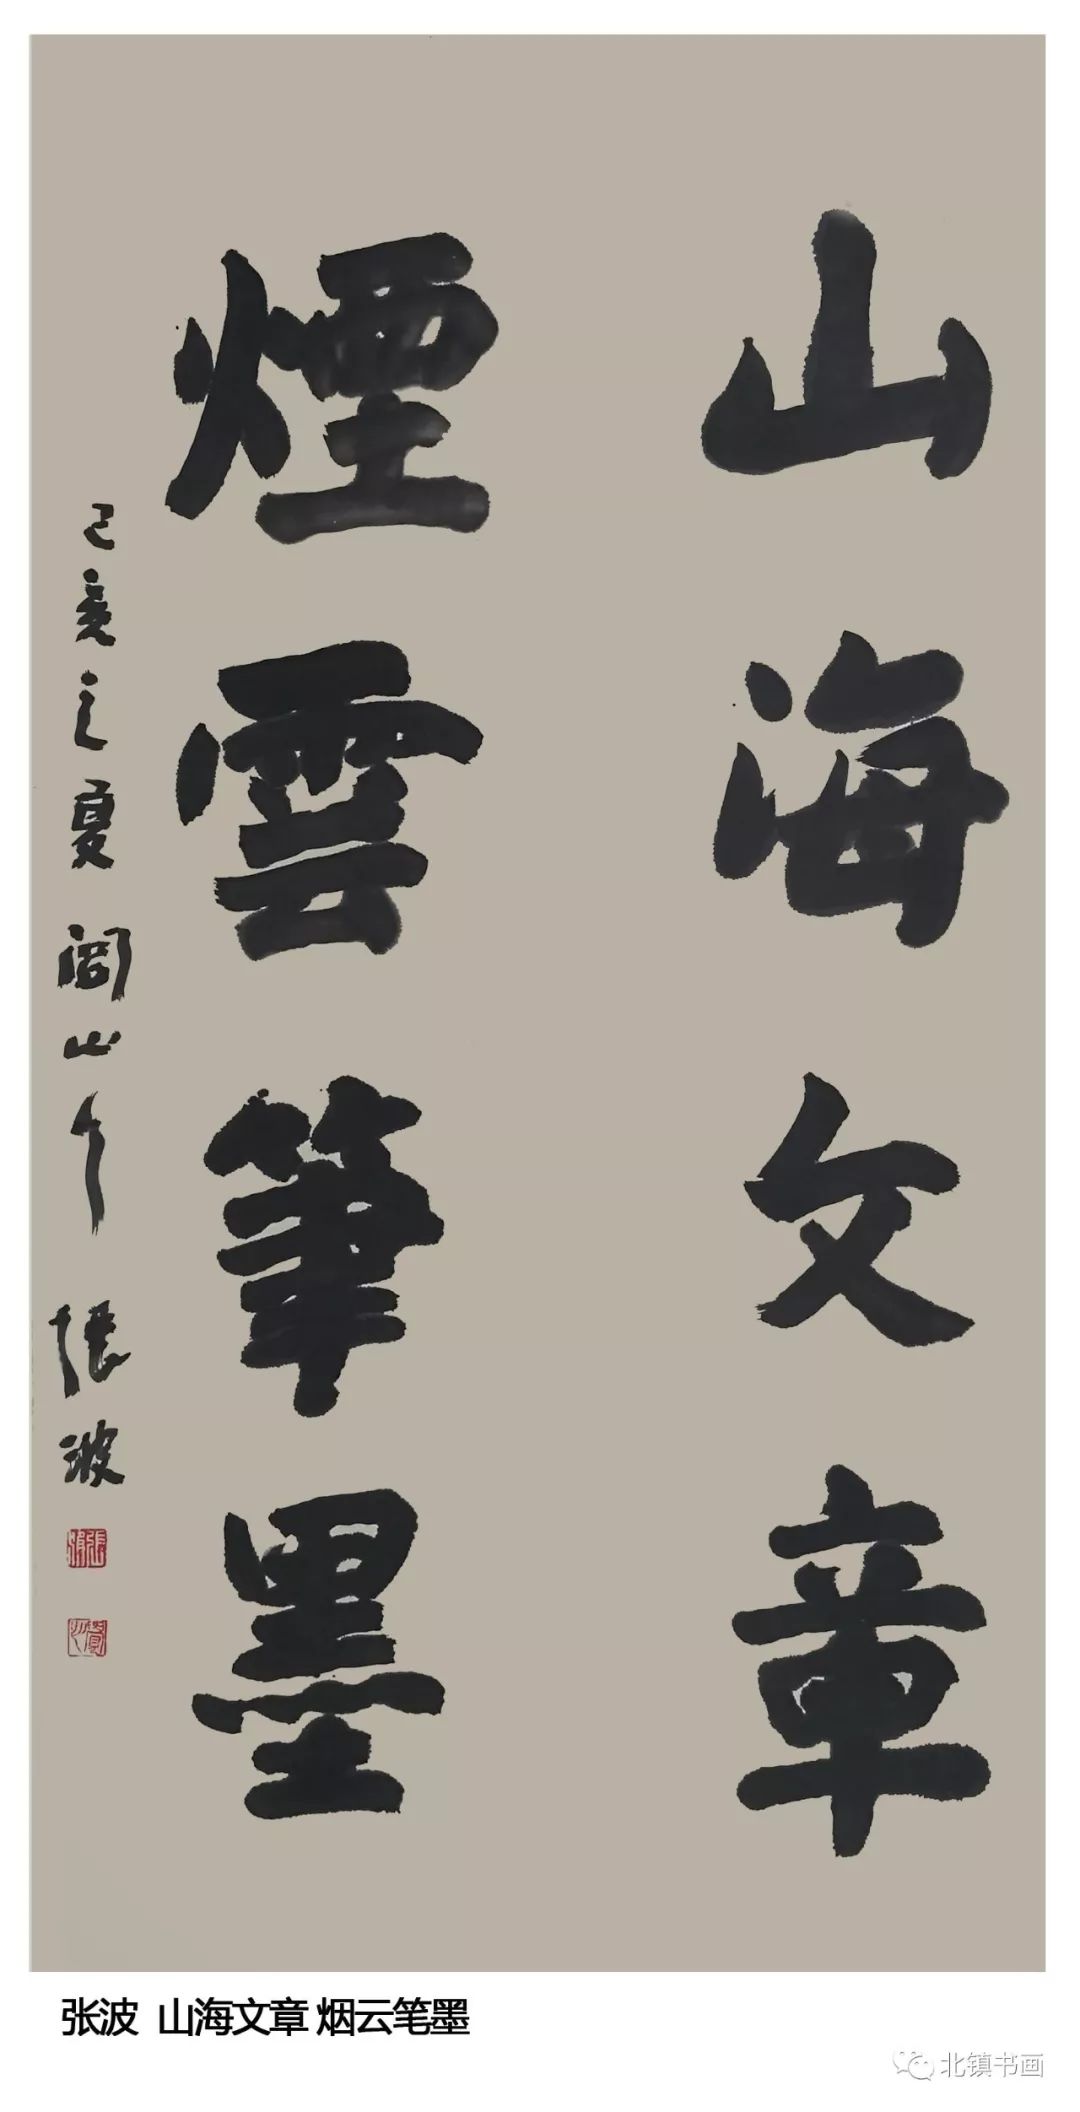 山海文章
煙雲筆墨
己亥之夏 閭山人 張波
张波 山海文章 烟云笔墨
北镇书画